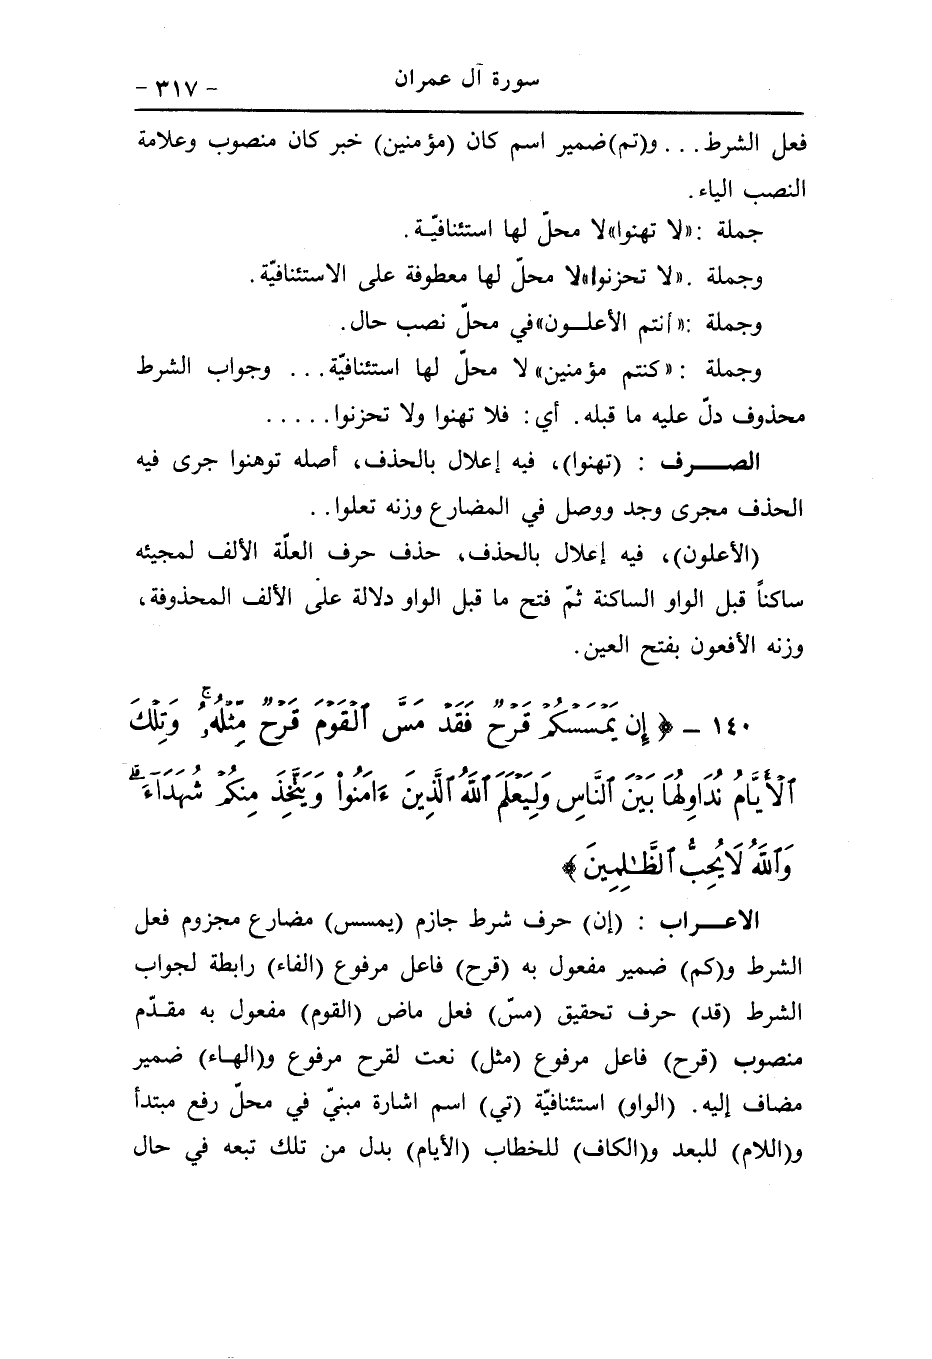 سورة آل عمران
- ٣١٧ -
فعل الشرط . . . و(تم)ضمير اسم كان (مؤمنين) خبر كان منصوب وعلامة
النصب الياء .
جملة :«لا تهنوا»لا محلّ لها استئنافيّـة .
وجملة .«لا تحزنوا»لا محلّ لها معطوفة على الاستئنافيّة .
وجملة :«أنتم الأعلـون»في محلّ نصب حال .
وجملة : «كنتم مؤمنين» لا محلّ لها استئنافيّة . . . وجواب الشرط
محذوف دلّ عليه ما قبله . أي : فلا تهنوا ولا تحزنوا . . . . .
الصـــرف : (تهنوا)، فيه إعلال بالحذف، أصله توهنوا جرى فيه
الحذف مجرى وجد ووصل في المضارع وزنه تعلوا . .
(الأعلون)، فيه إعلال بالحذف، حذف حرف العلّة الألف لمجيئه
ساكناً قبل الواو الساكنة ثمّ فتح ما قبل الواو دلالة على الألف المحذوفة،
وزنه الأفعون بفتح العين .
١٤٠ - ﴿ إِن يَمْسَسْكُمْ قَرْحٌ فَقَدْ مَسَّ ٱلْقَوْمَ قَرْحٌ مِّثْلُهُۥۚ وَتِلْكَ
ٱلْأَيَّامُ نُدَاوِلُهَا بَيْنَ ٱلنَّاسِ وَلِيَعْلَمَ ٱللَّهُ ٱلَّذِينَ ءَامَنُوا۟ وَيَتَّخِذَ مِنكُمْ شُهَدَآءَۗ
وَٱللَّهُ لَا يُحِبُّ ٱلظَّـٰلِمِينَ ﴾
الاعـــراب : (إن) حرف شرط جازم (يمسس) مضارع مجزوم فعل
الشرط و(كم) ضمير مفعول به (قرح) فاعل مرفوع (الفاء) رابطة لجواب
الشرط (قد) حرف تحقيق (مسّ) فعل ماض (القوم) مفعول به مقـدّم
منصوب (قرح) فاعل مرفوع (مثل) نعت لقرح مرفوع و(الهـاء) ضمير
مضاف إليه . (الواو) استئنافيّة (تي) اسم اشارة مبنيّ في محلّ رفع مبتدأ
و(اللام) للبعد و(الكاف) للخطاب (الأيام) بدل من تلك تبعه في حال